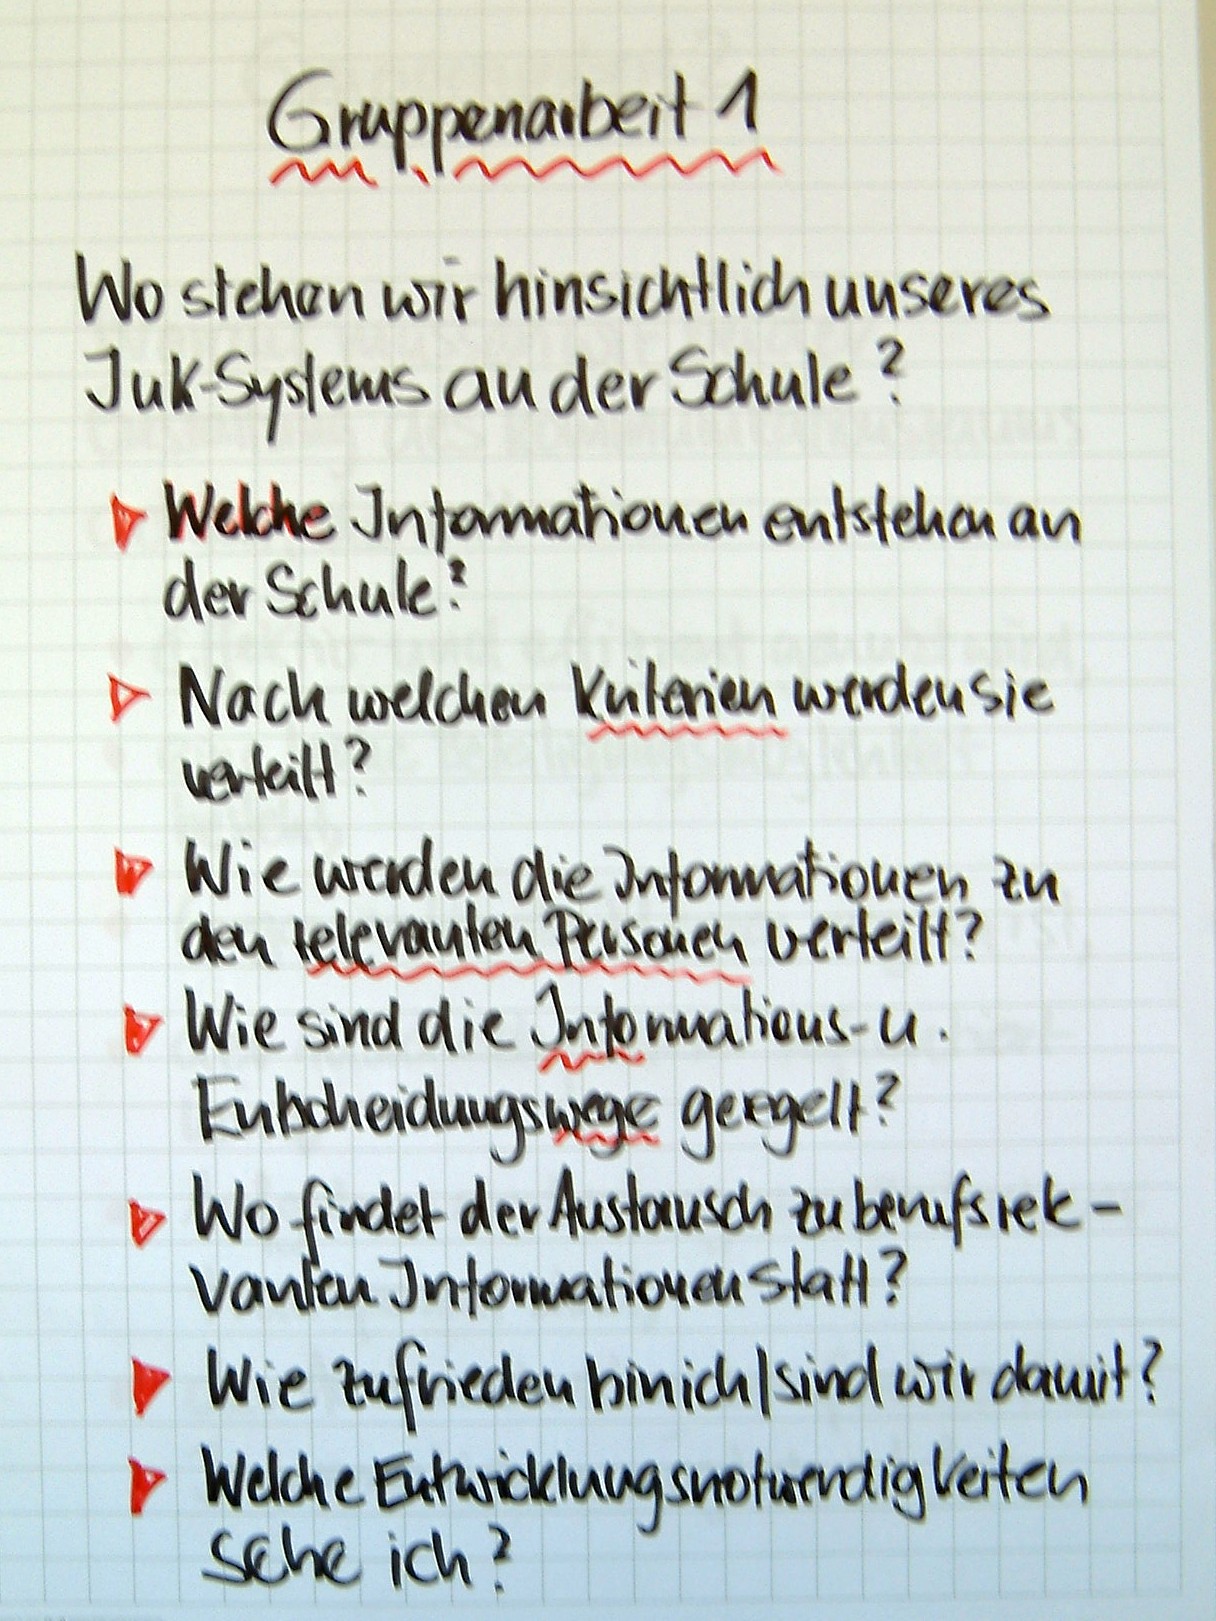 Gruppenarbeit 1
Wo stehen wir hinsichtlich unseres
JuK-Systems an der Schule?
Welche Informationen entstehen an
der Schule?
Nach welchen Kriterien werden sie
verteilt?
Wie werden die Informationen zu
den relevanten Personen verteilt?
Wie sind die Informations- u.
Entscheidungswege geregelt?
Wo findet der Austausch zu berufsrele-
vanten Informationen statt?
Wie zufrieden bin ich/sind wir damit?
Welche Entwicklungsnotwendigkeiten
sehe ich?